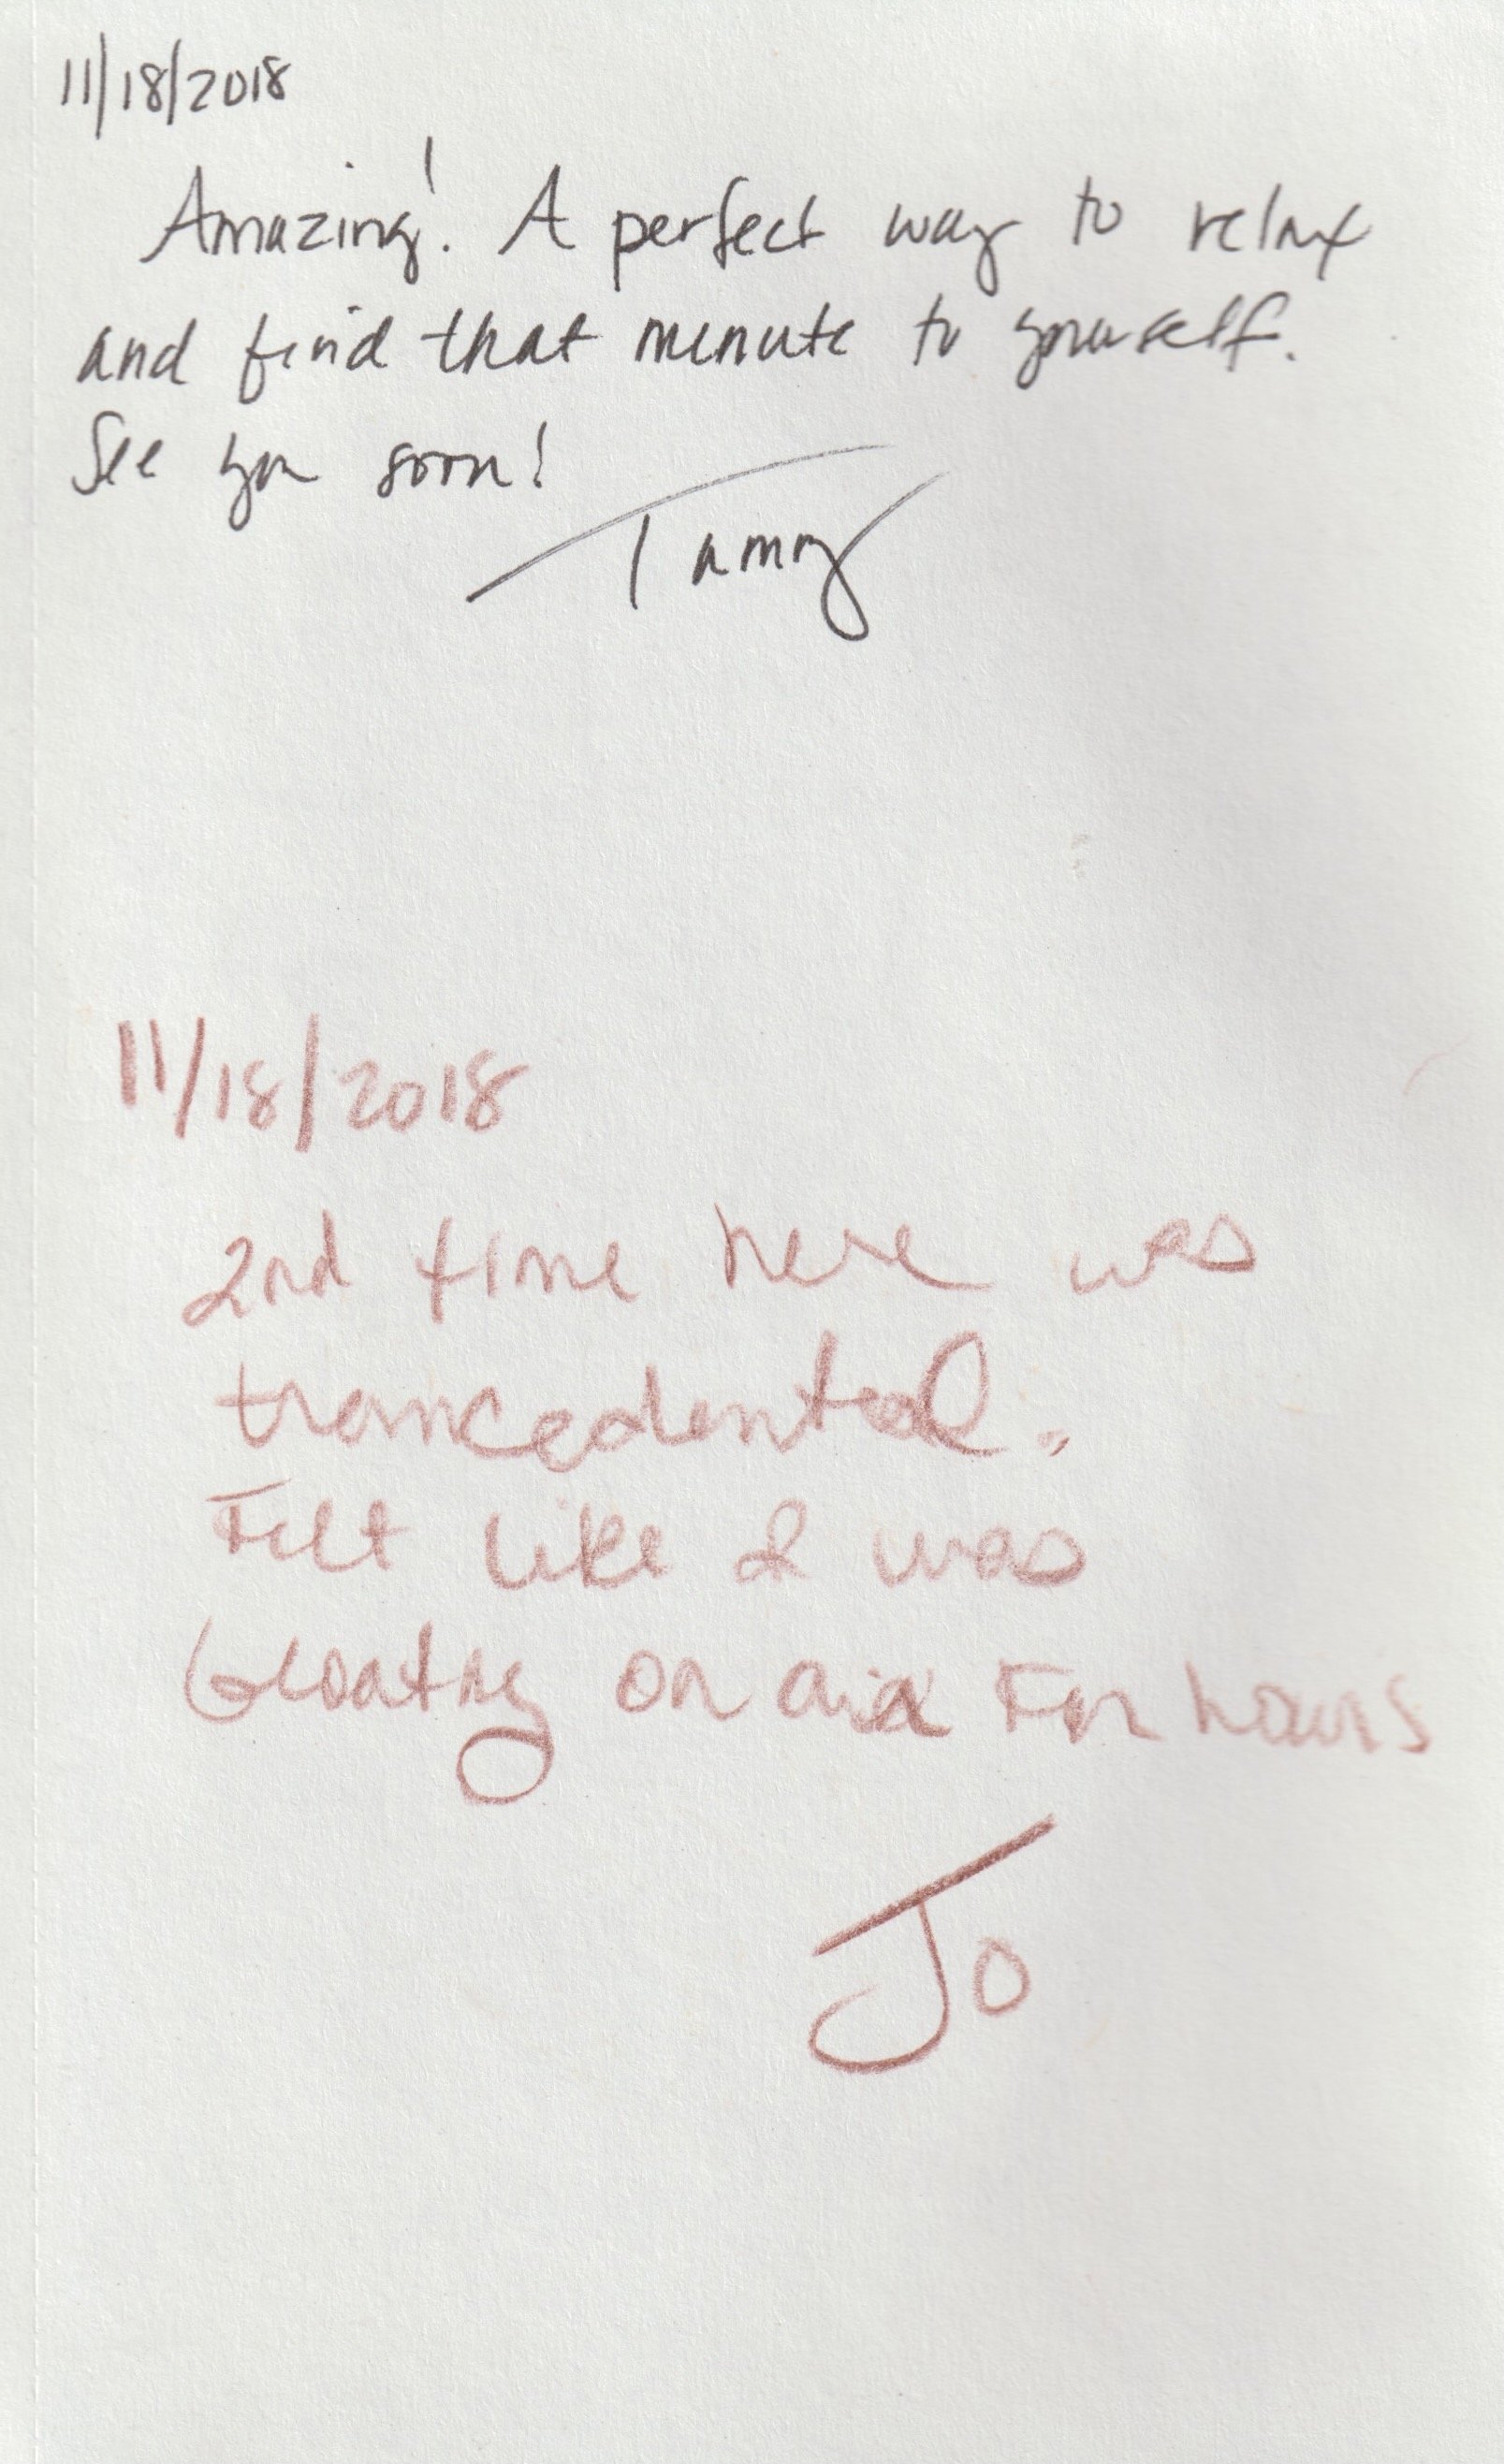 11/18/2018
Amazing! A perfect way to relax
and find that minute to yourself.
See you soon!
Tammy
11/18/2018
2nd time here was
trancedental.
Felt like I was
floating on air for hours
Jo